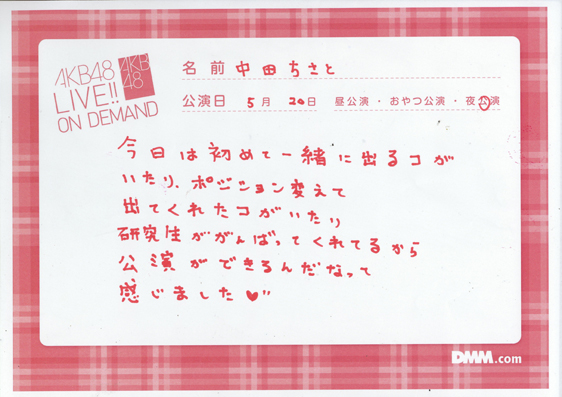 AKB48
LIVE!!
ON DEMAND
AKB
48
名前 中田ちさと
公演日 5月 20日 昼公演・おやつ公演・夜公演
今日は初めて一緒に出るコが
いたり、ポジション変えて
出てくれたコがいたり
研究生ががんばってくれてるから
公演ができるんだなって
感じました
DMM.com